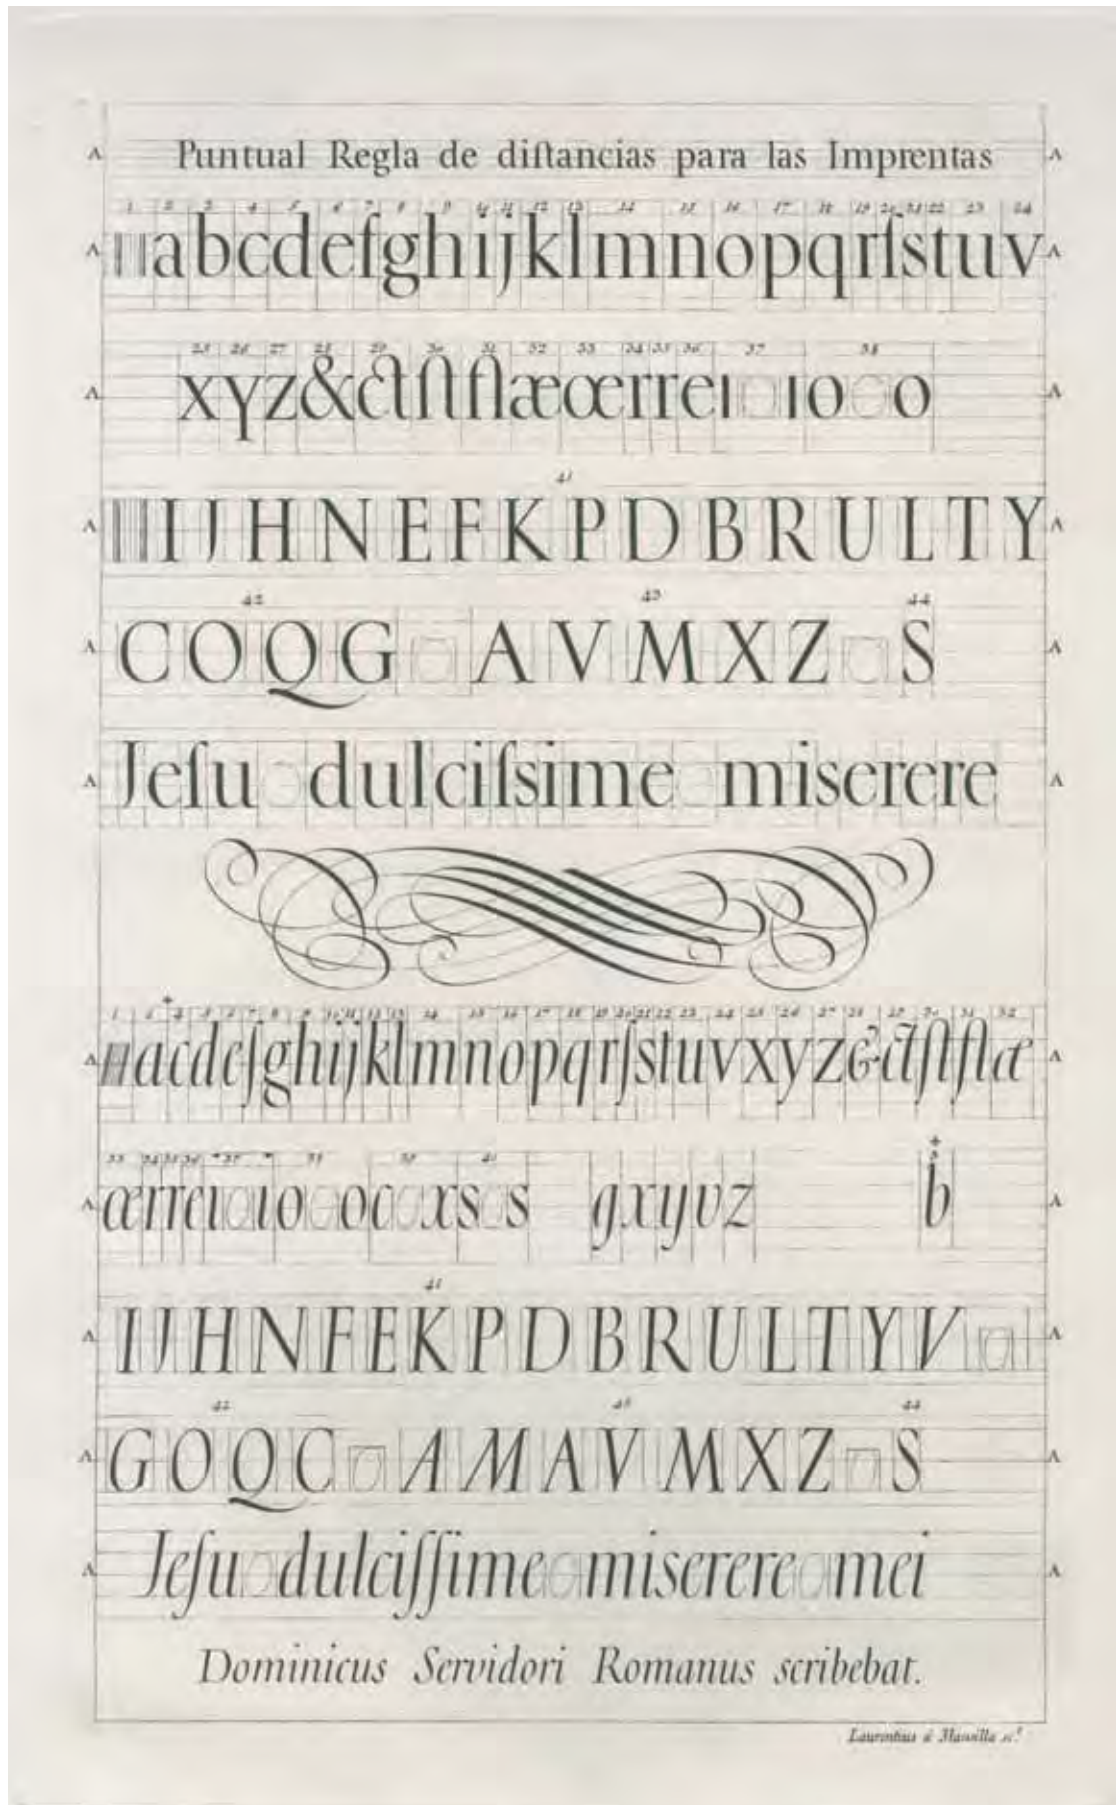 Puntual Regla de diſtancias para las Imprentas
1 2 3 4 5 6 7 8 9 10 11 12 13 14 15 16 17 18 19 20 21 22 23 24
a b c d e f g h i j k l m n o p q r ſ s t u v
25 26 27 28 29 30 31 32 33 34 35 36 37 38
x y z & ct ſt fl æ œ r r e ı ı o o
41
I J H N E F K P D B R U L T Y
42 43 44
C O Q G A V M X Z S
Jeſu dulciſsime miserere
1 2 4 5 6 7 8 9 10 11 12 13 14 15 16 17 18 19 20 21 22 23 24 25 26 27 28 29 30 31 32
a c d e f g h i j k l m n o p q r ſ s t u v x y z & ct ſt fl æ
33 34 35 36 37 38 39 40 3
œ r r e ı ı o o c x s s g x y v z b
41
I J H N F E K P D B R U L T Y V
42 43 44
G O Q C A M A V M X Z S
Jeſu dulciſſime miserere mei
Dominicus Servidori Romanus scribebat.
Laurentius à Mansilla sc.t